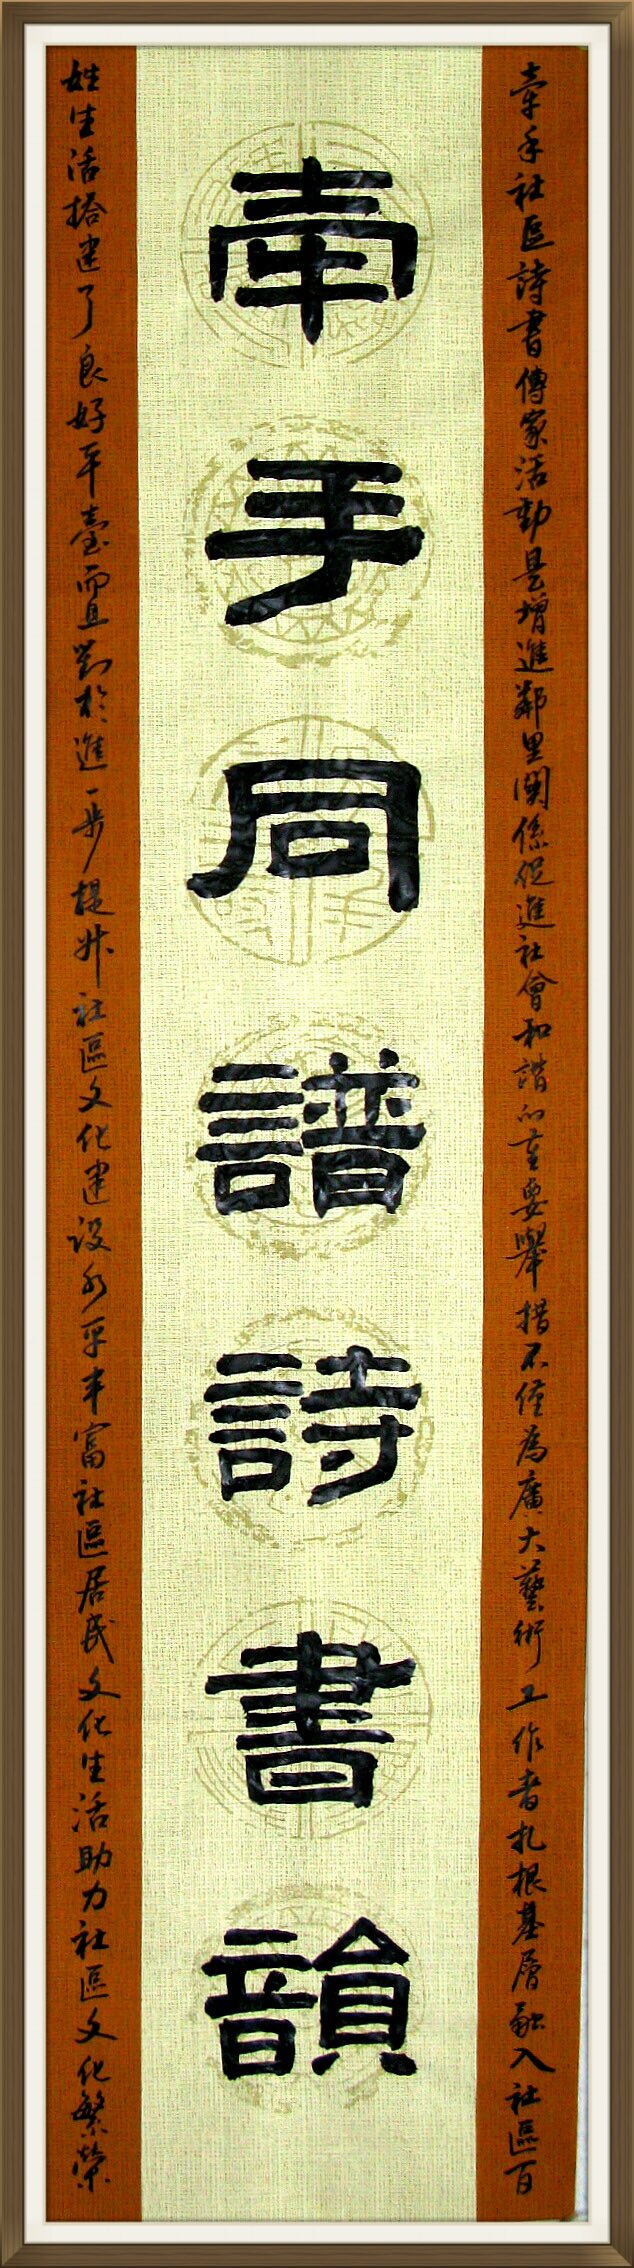 牵手同譜詩書韻
牵手社區詩書傳家活動是增進鄰里関係促進社會和諧的重要舉措不僅為廣大藝術工作者扎根基層融入社區百
姓生活搭建了良好平臺而且對於進一步提升社區文化建设水平丰富社區居民文化生活助力社區文化繁榮